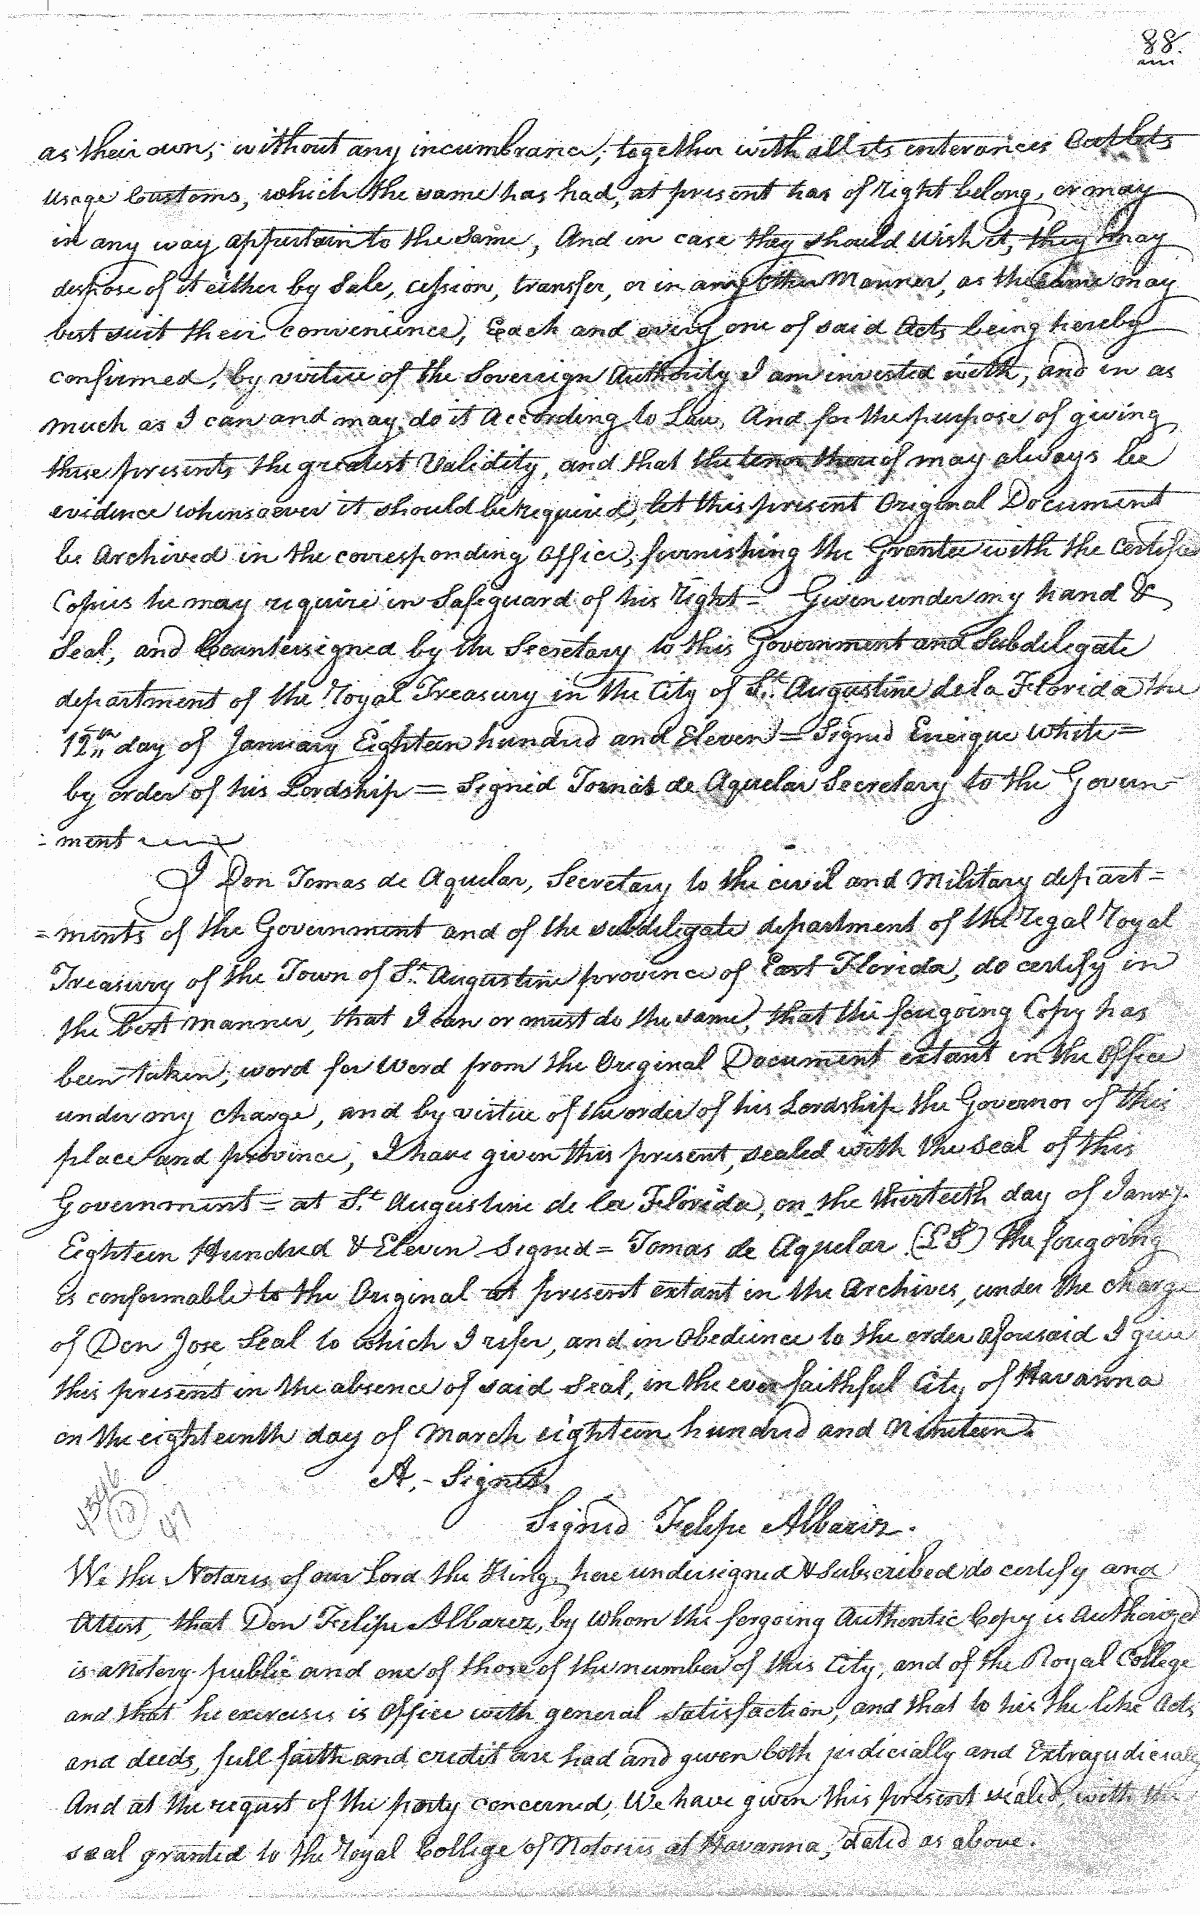 88.
as their own; without any incumbrance, together with all its enterances Outlets
Usage Customs, which the same has had, at present has of right belong, or may
in any way appertain to the same, And in case they should Wish it, they may
dispose of it either by Sale, cession, transfer, or in any other Manner, as the same may
best suit their convenience, Each and every one of said Acts being hereby
confirmed, by virtue of the Sovereign Authority I am invested with, and in as
much as I can and may do it According to Law, And for the purpose of giving
these presents the greatest Validity, and that the tenor thereof may always be
evidence whensoever it should be required, let this present Original Document
be Archived in the corresponding Office, furnishing the Grantee with the Certified
Copies he may require in Safeguard of his Right = Given under my hand &
Seal, and Countersigned by the Secretary to this Government and Subdelegate
department of the Royal Treasury in the City of St. Augustine de la Florida the
12th day of January Eighteen hundred and Eleven = Signed Enrique White =
by order of his Lordship = Signed Tomas de Aquelar Secretary to the Govern=
=ment
I Don Tomas de Aquelar, Secretary to the civil and Military depart=
=ments of the Government and of the subdelegate department of the Regal Royal
Treasury of the Town of St. Augustine province of East Florida, do certify in
the best manner, that I can or must do the same, that the foregoing Copy has
been taken, word for Word from the Original Document extant in the Office
under my charge, and by virtue of the order of his Lordship the Governor of this
place and province, I have given this present, sealed with the seal of this
Government = at St. Augustine de la Florida, on the thirteeth day of Janry.
Eighteen Hundred & Eleven Signed = Tomas de Aquelar (LS) The foregoing
is conformable to the Original at present extant in the Archives, under the charge
of Don Jose Seal to which I refer, and in obedience to the order aforesaid I give
this present in the absence of said Seal, in the ever faithful City of Havanna
on the eighteenth day of March eighteen hundred and Nineteen.
A. - Signed.
Signed Felipe Albarez.
We the Notaries of our Lord the King, here undersigned & Subscribed do certify and
Attest, that Don Felipe Albarez, by whom the forgoing Authentic Copy is Authorized
is a Notery public and one of those of the number of this City, and of the Royal College
and that he exercises is Office with general satisfaction, and that to his the like Acts
and deeds, full faith and credit are had and given both judicially and Extrajudicially
And at the request of the party concerned, We have given this present sealed, with the
seal granted to the Royal College of Notories at Havanna, dated as above.